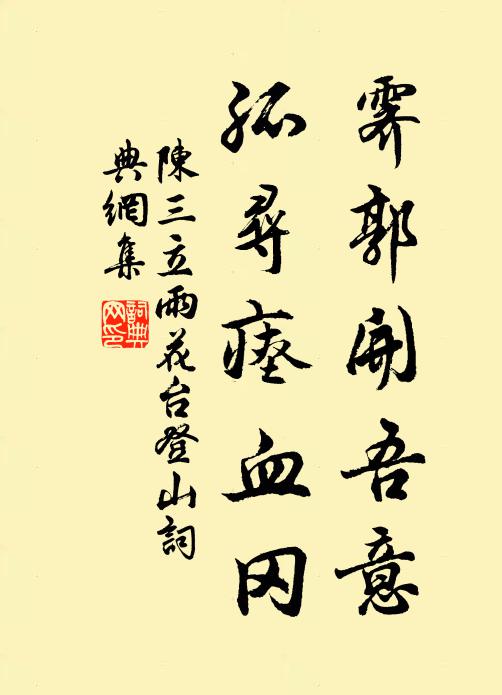 霽郭開吾意
孤尋瘞血冈
陳三立雨花台登山詞
典網集
詞典網印